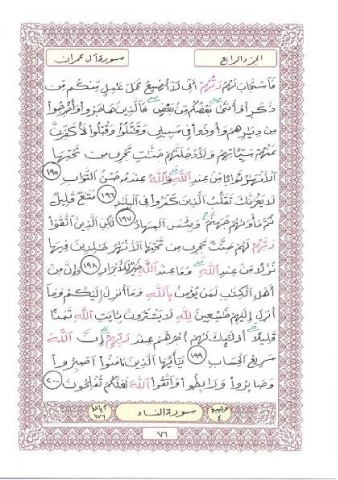 سورة آل عمران الجزء الرابع
فَاسْتَجَابَ لَهُمْ رَبُّهُمْ أَنِّي لَا أُضِيعُ عَمَلَ عَامِلٍ مِنْكُمْ مِنْ
ذَكَرٍ أَوْ أُنْثَى بَعْضُكُمْ مِنْ بَعْضٍ فَالَّذِينَ هَاجَرُوا وَأُخْرِجُوا
مِنْ دِيَارِهِمْ وَأُوذُوا فِي سَبِيلِي وَقَاتَلُوا وَقُتِلُوا لَأُكَفِّرَنَّ
عَنْهُمْ سَيِّئَاتِهِمْ وَلَأُدْخِلَنَّهُمْ جَنَّاتٍ تَجْرِي مِنْ تَحْتِهَا
الْأَنْهَارُ ثَوَابًا مِنْ عِنْدِ اللَّهِ وَاللَّهُ عِنْدَهُ حُسْنُ الثَّوَابِ ١٩٥
لَا يَغُرَّنَّكَ تَقَلُّبُ الَّذِينَ كَفَرُوا فِي الْبِلَادِ ١٩٦ مَتَاعٌ قَلِيلٌ
ثُمَّ مَأْوَاهُمْ جَهَنَّمُ وَبِئْسَ الْمِهَادُ ١٩٧ لَكِنِ الَّذِينَ اتَّقَوْا
رَبَّهُمْ لَهُمْ جَنَّاتٌ تَجْرِي مِنْ تَحْتِهَا الْأَنْهَارُ خَالِدِينَ فِيهَا
نُزُلًا مِنْ عِنْدِ اللَّهِ وَمَا عِنْدَ اللَّهِ خَيْرٌ لِلْأَبْرَارِ ١٩٨ وَإِنَّ مِنْ
أَهْلِ الْكِتَابِ لَمَنْ يُؤْمِنُ بِاللَّهِ وَمَا أُنْزِلَ إِلَيْكُمْ وَمَا
أُنْزِلَ إِلَيْهِمْ خَاشِعِينَ لِلَّهِ لَا يَشْتَرُونَ بِآيَاتِ اللَّهِ ثَمَنًا
قَلِيلًا أُولَئِكَ لَهُمْ أَجْرُهُمْ عِنْدَ رَبِّهِمْ إِنَّ اللَّهَ
سَرِيعُ الْحِسَابِ ١٩٩ يَا أَيُّهَا الَّذِينَ آمَنُوا اصْبِرُوا
وَصَابِرُوا وَرَابِطُوا وَاتَّقُوا اللَّهَ لَعَلَّكُمْ تُفْلِحُونَ ٢٠٠
سورة النساء آياتها ١٧٦
٧٦